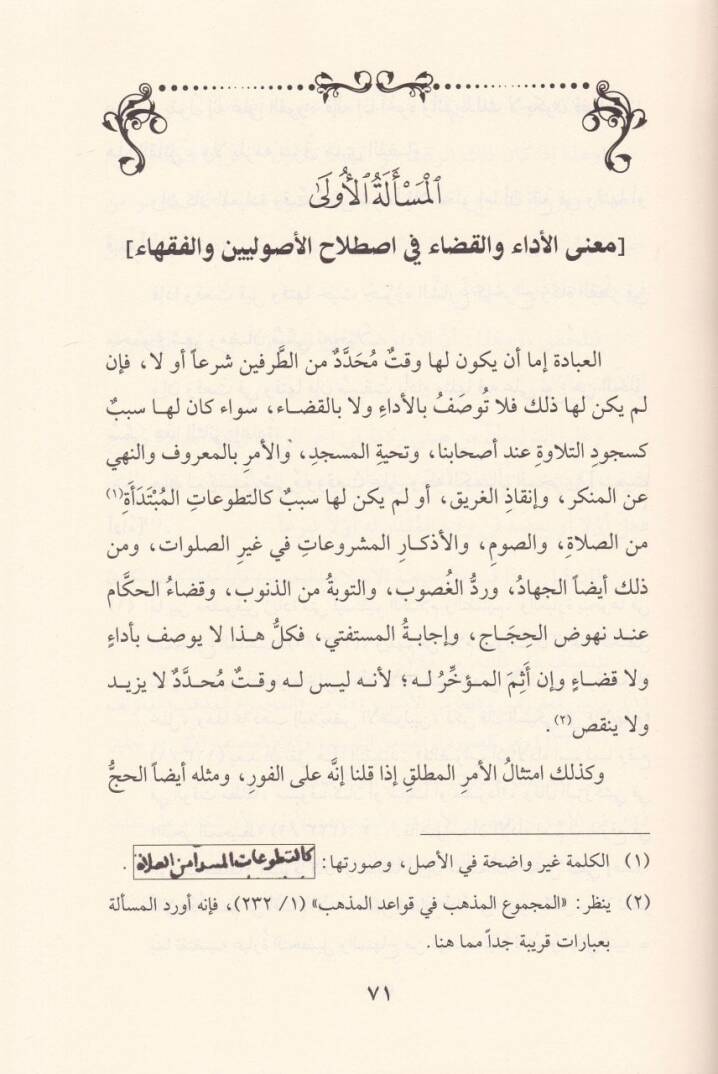 الْمَسْأَلَةُ الْأُولَىٰ
[معنى الأداء والقضاء في اصطلاح الأصوليين والفقهاء]
العبادة إما أن يكون لها وقتٌ مُحَدَّدٌ من الطَّرفين شرعاً أو لا، فإن
لم يكن لها ذلك فلا تُوصَفُ بالأداءِ ولا بالقضاء، سواء كان لها سببٌ
كسجودِ التلاوةِ عند أصحابنا، وتحيةِ المسجدِ، والأمرِ بالمعروف والنهي
عن المنكر، وإنقاذِ الغريق، أو لم يكن لها سببٌ كالتطوعاتِ المُبْتَدَأَةِ(١)
من الصلاةِ، والصومِ، والأذكارِ المشروعاتِ في غيرِ الصلوات، ومن
ذلك أيضاً الجهادُ، وردُّ الغُصوبِ، والتوبةُ من الذنوب، وقضاءُ الحكَّام
عند نهوض الحِجَاج، وإجابةُ المستفتي، فكلُّ هذا لا يوصف بأداءٍ
ولا قضاءٍ وإن أَثِمَ المؤخِّرُ له؛ لأنه ليس له وقتٌ مُحدَّدٌ لا يزيد
ولا ينقص(٢).
وكذلك امتثالُ الأمرِ المطلقِ إذا قلنا إنَّه على الفورِ، ومثله أيضاً الحجُّ
(١) الكلمة غير واضحة في الأصل، وصورتها: كالتطوعات من الصلاة.
(٢) ينظر: «المجموع المذهب في قواعد المذهب» (١/ ٢٣٢)، فإنه أورد المسألة
بعبارات قريبة جداً مما هنا.
٧١